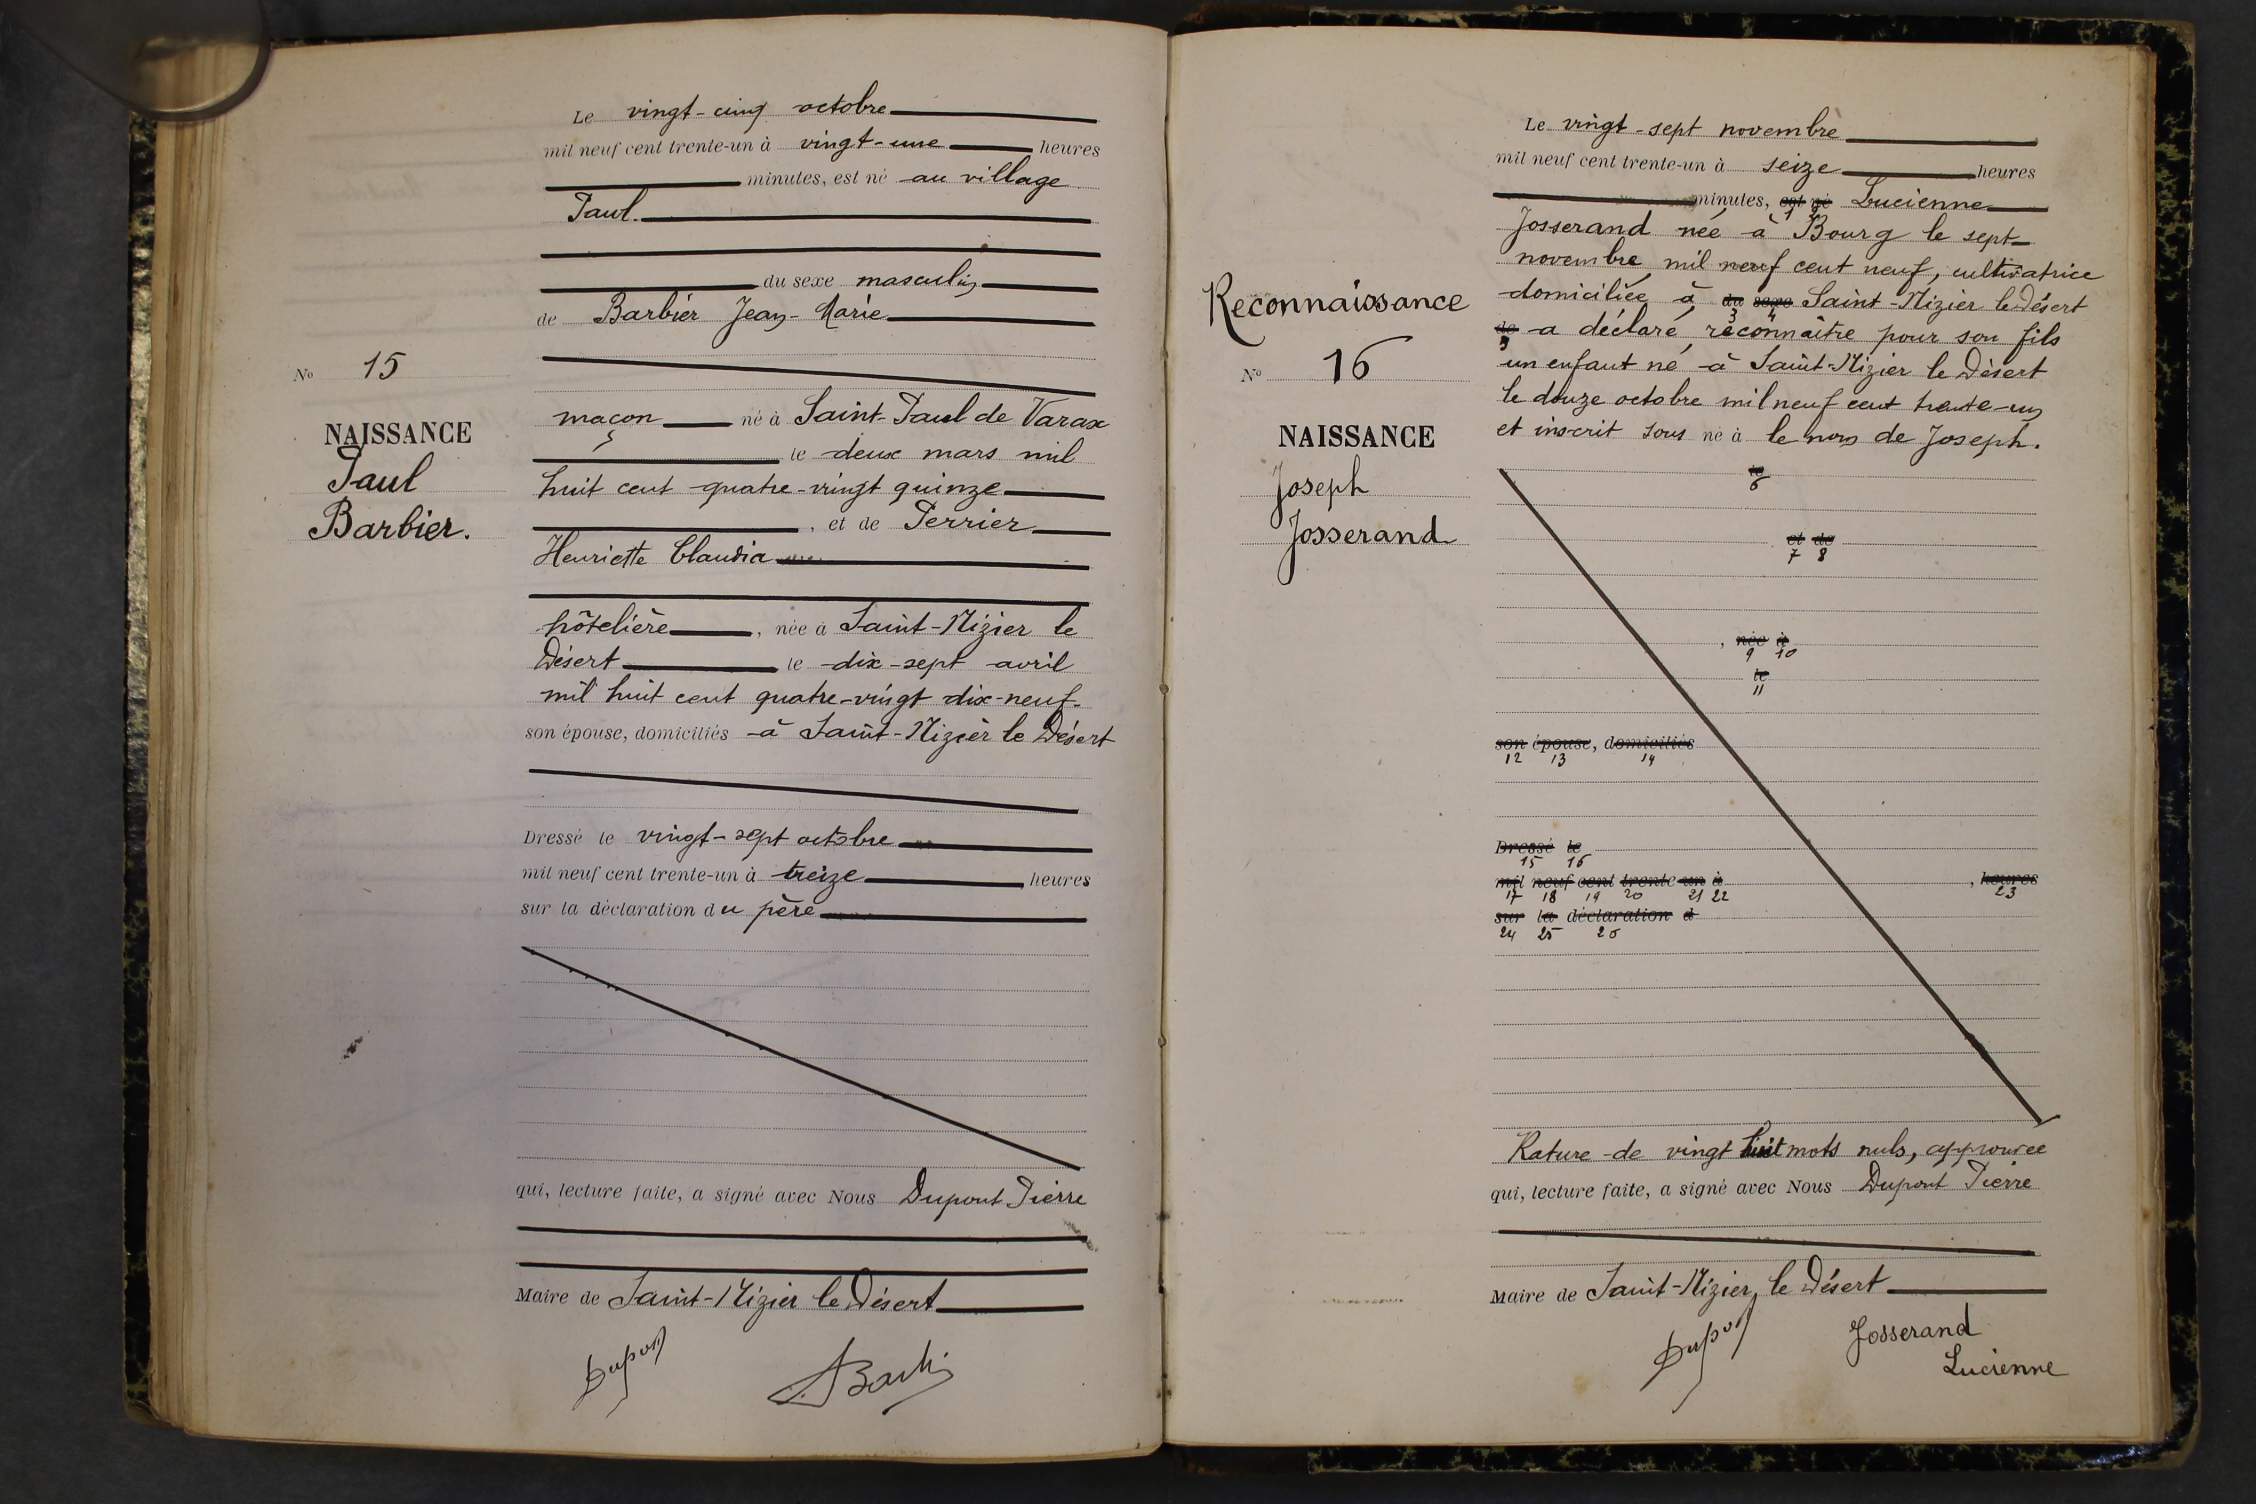 Le vingt-cinq octobre
mil neuf cent trente-un à vingt-une heures
minutes, est né au village
Paul.
du sexe masculin
de Barbier Jean-Marie
maçon né à Saint-Paul de Varax
le deux mars mil
huit cent quatre-vingt quinze
, et de Perrier
Henriette Claudia
hôtelière, née à Saint-Nizier le
Désert le dix-sept avril
mil huit cent quatre-vingt dix-neuf.
son épouse, domiciliés à Saint-Nizier le Désert
Dressé le vingt-sept octobre
mil neuf cent trente-un à treize heures
sur la déclaration du père
qui, lecture faite, a signé avec Nous Dupont Pierre
Maire de Saint-Nizier le Désert
Dupont
Barbier
No 15
NAISSANCE
Paul
Barbier.
Reconnaissance
No 16
NAISSANCE
Joseph
Josserand
Le vingt-sept novembre
mil neuf cent trente-un à seize heures
minutes, est né Lucienne
1 2
Josserand née à Bourg le sept
novembre mil neuf cent neuf, cultivatrice
domiciliée à du sexe Saint-Nizier le Désert
3 4
de a déclaré reconnaître pour son fils
5
un enfant né à Saint-Nizier le Désert
le douze octobre mil neuf cent trente-un
et inscrit sous né à le nom de Joseph.
le
6
et de
7 8
, née à
9 10
le
11
son épouse, domiciliés
12 13 14
Dressé le
15 16
mil neuf cent trente-un à , heures
17 18 19 20 21 22 23
sur la déclaration d
24 25 26
Rature de vingt huit mots nuls, approuvée
qui, lecture faite, a signé avec Nous Dupont Pierre
Maire de Saint-Nizier le Désert
Dupont
Josserand
Lucienne